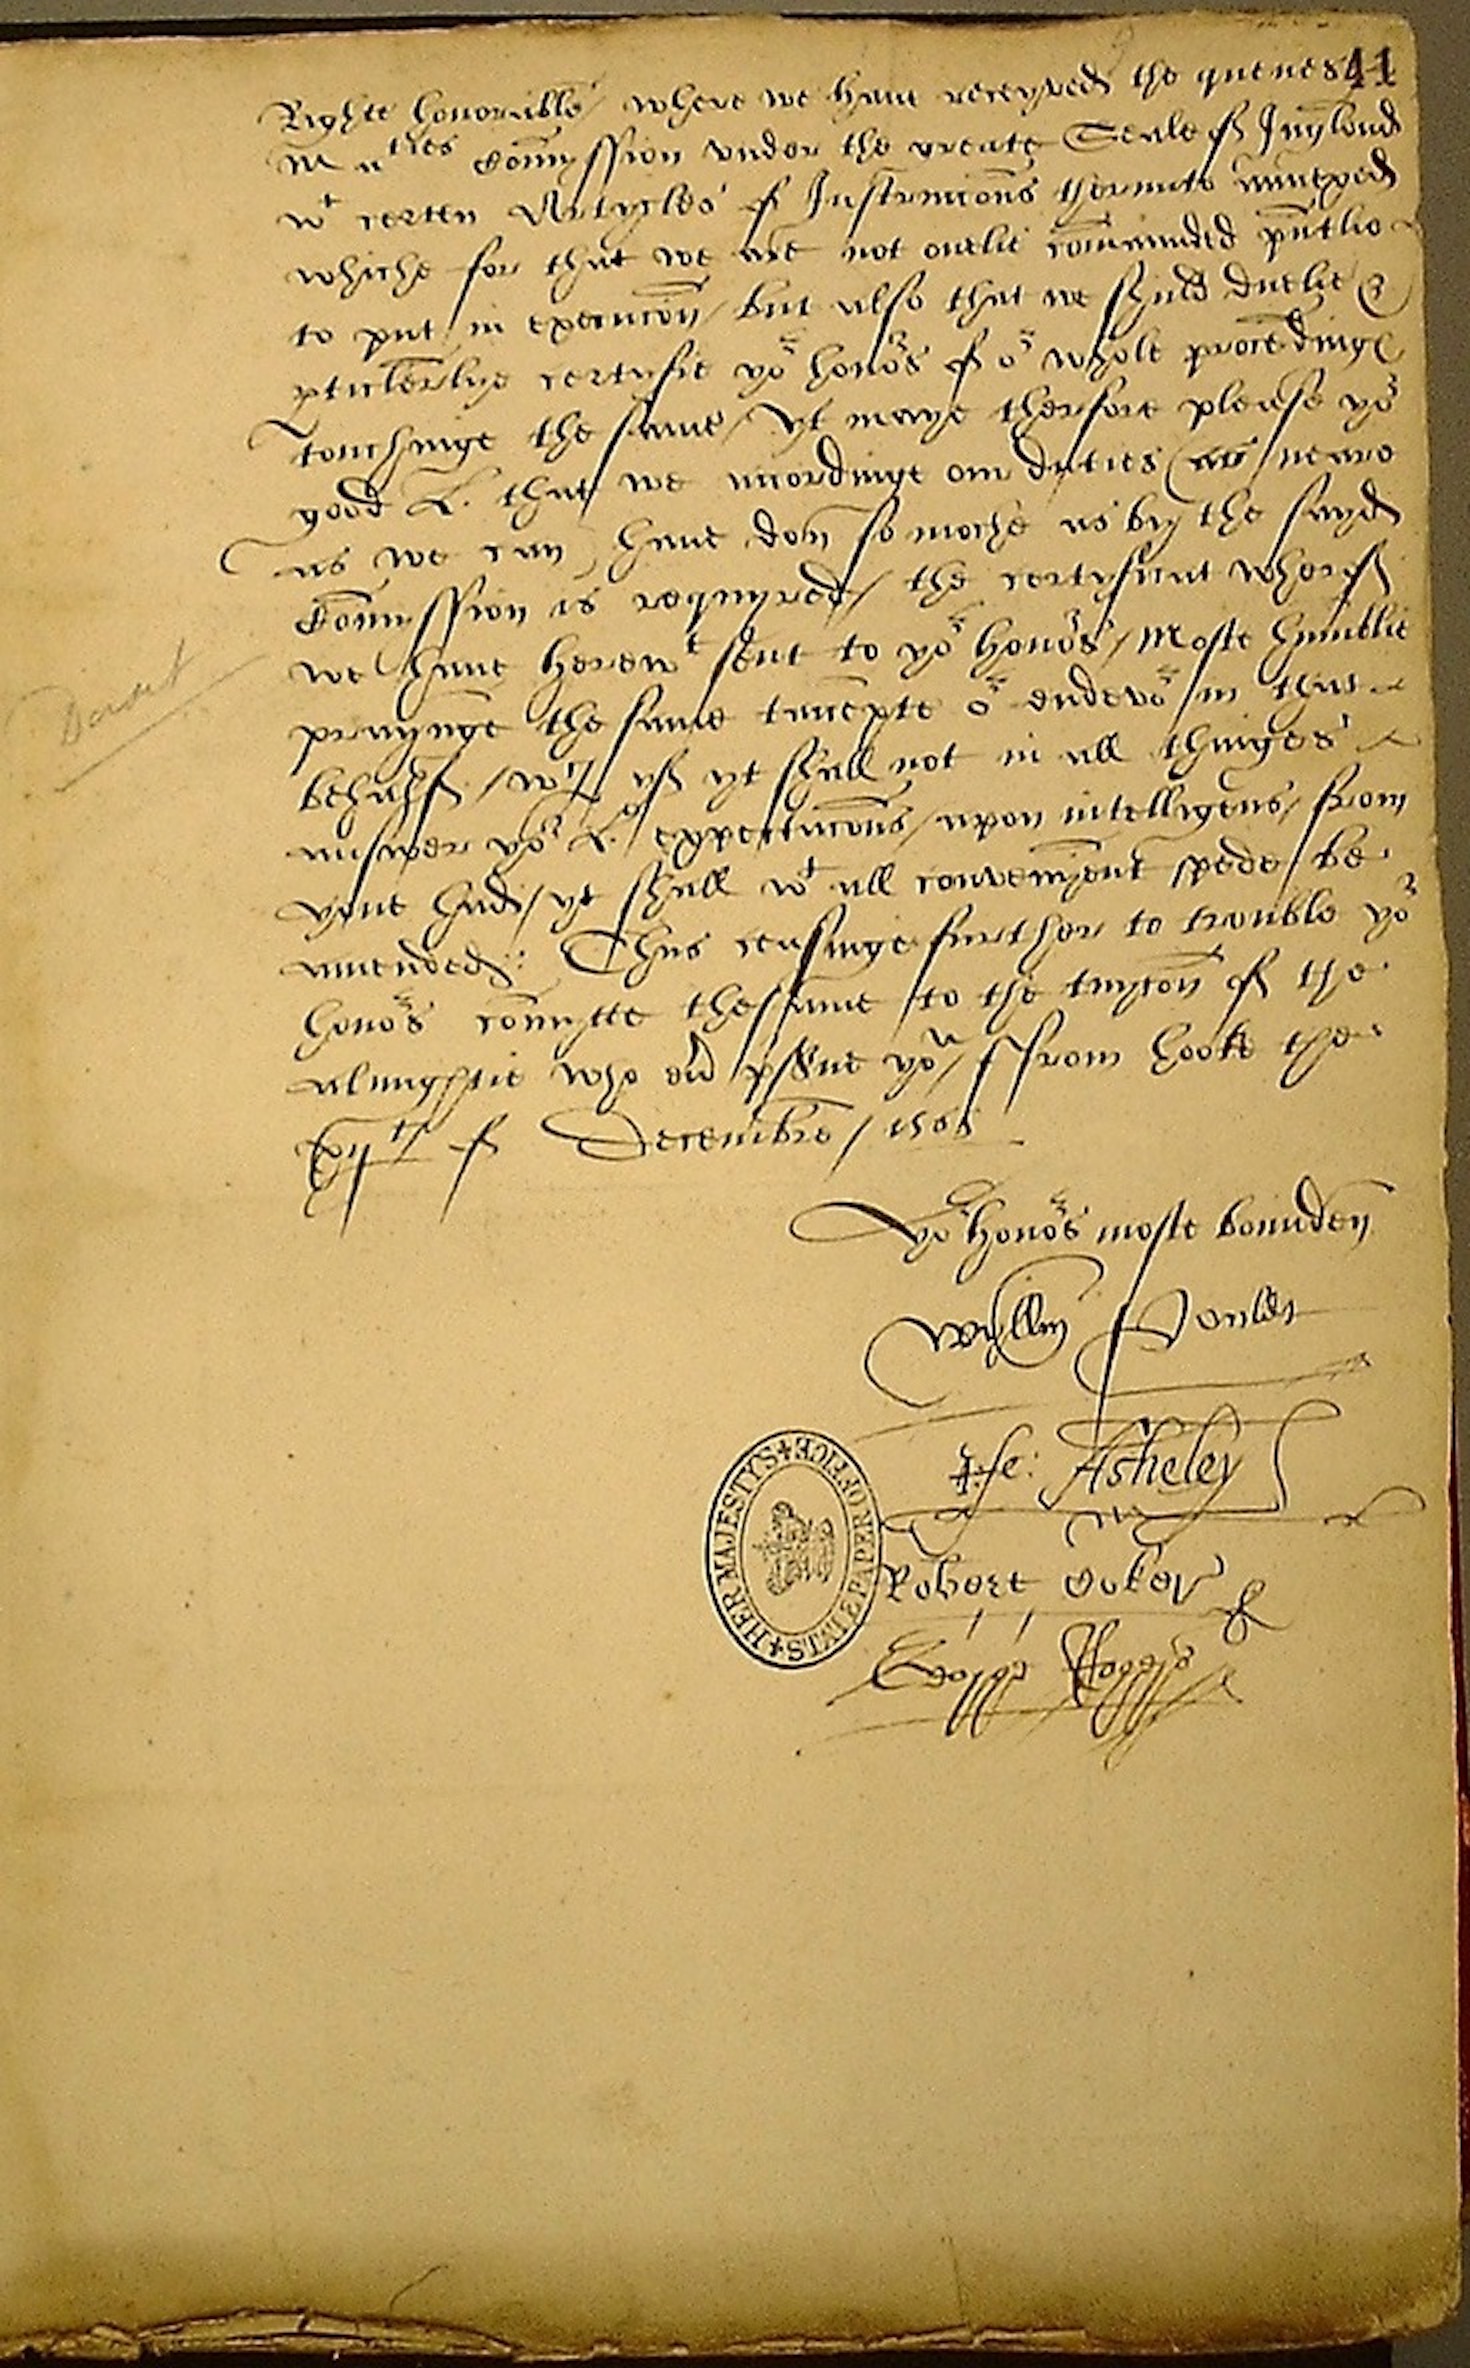 41
Righte honorable / where we haue receyved the quenes
Maties Comyssion vnder the greate Seale of Inglond
wt certen Artycles of Instrucons therunto annexed
whiche for that we are not onelie comaunded pntlie
to put in execucon / but also that we shuld duelie &
pticlerlye certyfie yor honors of or whole procedinge
touchinge the same / yt maye therfore please yor
good L. that we accordinge our duties (as neare
as we can) haue don so moche as by the sayd
Comyssion is requyred / the certyficat wherof
we haue herewt sent to yor honors / Moste humblie
prayinge the same t'accepte or endevor in that
behalf / wch yf yt shall not in all thinges
answer yor L. expectacons / upon intelligens from
you had / yt shall wt all convenyent spede / be
amended: Thus ceasinge further to trouble yor
honors comytte the same / to the tuycon of the
almyghtie who ever pserue you / From hooke the
xijth of Decembre / 1565
Yor honors moste bounden
Wyllm
He: Asheley
Robert Coker
Dorset
HER MAJESTYS STATE PAPER OFFICE